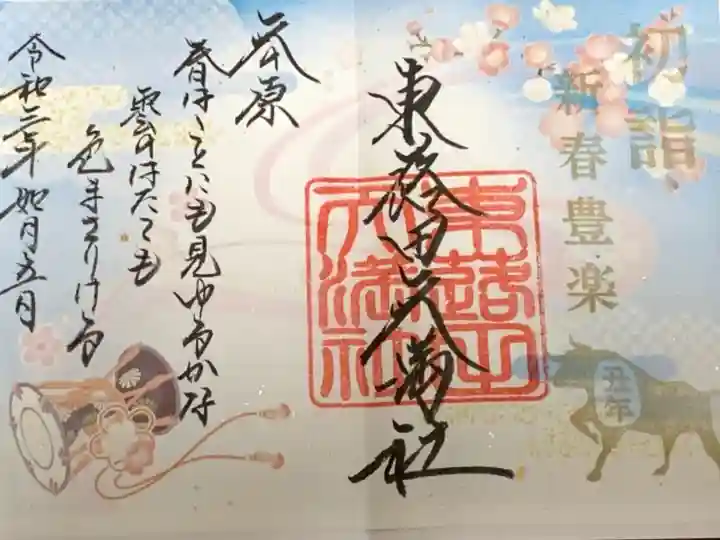 初詣
新春豊楽
丑年
東蕗田天満社
東蕗田
天満社
天原
春はことにも見ゆるかな
雲のはたても
色まさりける
令和三年如月五日